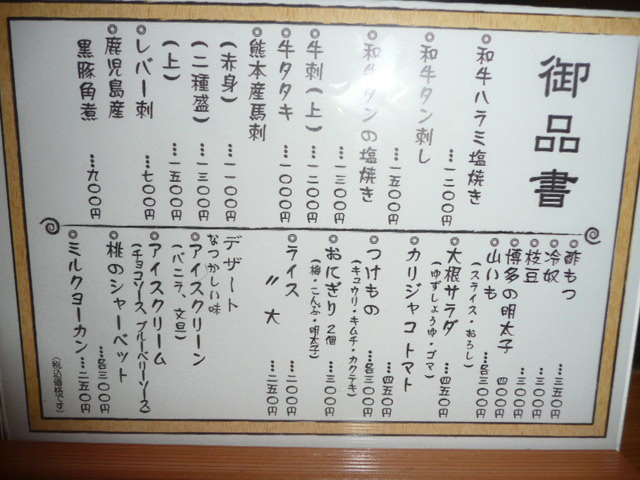 御品書
◎和牛ハラミ塩焼き
…一二〇〇円
◎和牛タン刺し
…一五〇〇円
◎和牛タンの塩焼き
…一三〇〇円
◎牛刺(上)…一二〇〇円
◎牛タタキ…一〇〇〇円
◎熊本産馬刺
(赤身)…一一〇〇円
(二種盛)…一三〇〇円
(上)…一五〇〇円
◎レバー刺…七〇〇円
◎鹿児島産
黒豚角煮…九〇〇円
◎酢もつ…三五〇円
◎冷奴…三〇〇円
◎枝豆…三〇〇円
◎博多の明太子四〇〇円
◎山いも…各三〇〇円
(スライス・おろし)
◎大根サラダ…四五〇円
(ゆずしょうゆ・ゴマ)
◎カリジャコトマト
…四五〇円
◎つけもの…各三〇〇円
(キュウリ・キムチ・カクテキ)
◎おにぎり2個…三〇〇円
(梅・こんぶ・明太子)
◎ライス…二〇〇円
〃大…二五〇円
デザート
なつかしい味
◎アイスクリーン
(バニラ、文旦)
◎アイスクリーム
(チョコソース、ブルーベリーソース)
◎桃のシャーベット
…各三〇〇円
◎ミルクヨーカン…二五〇円
(税込価格です)